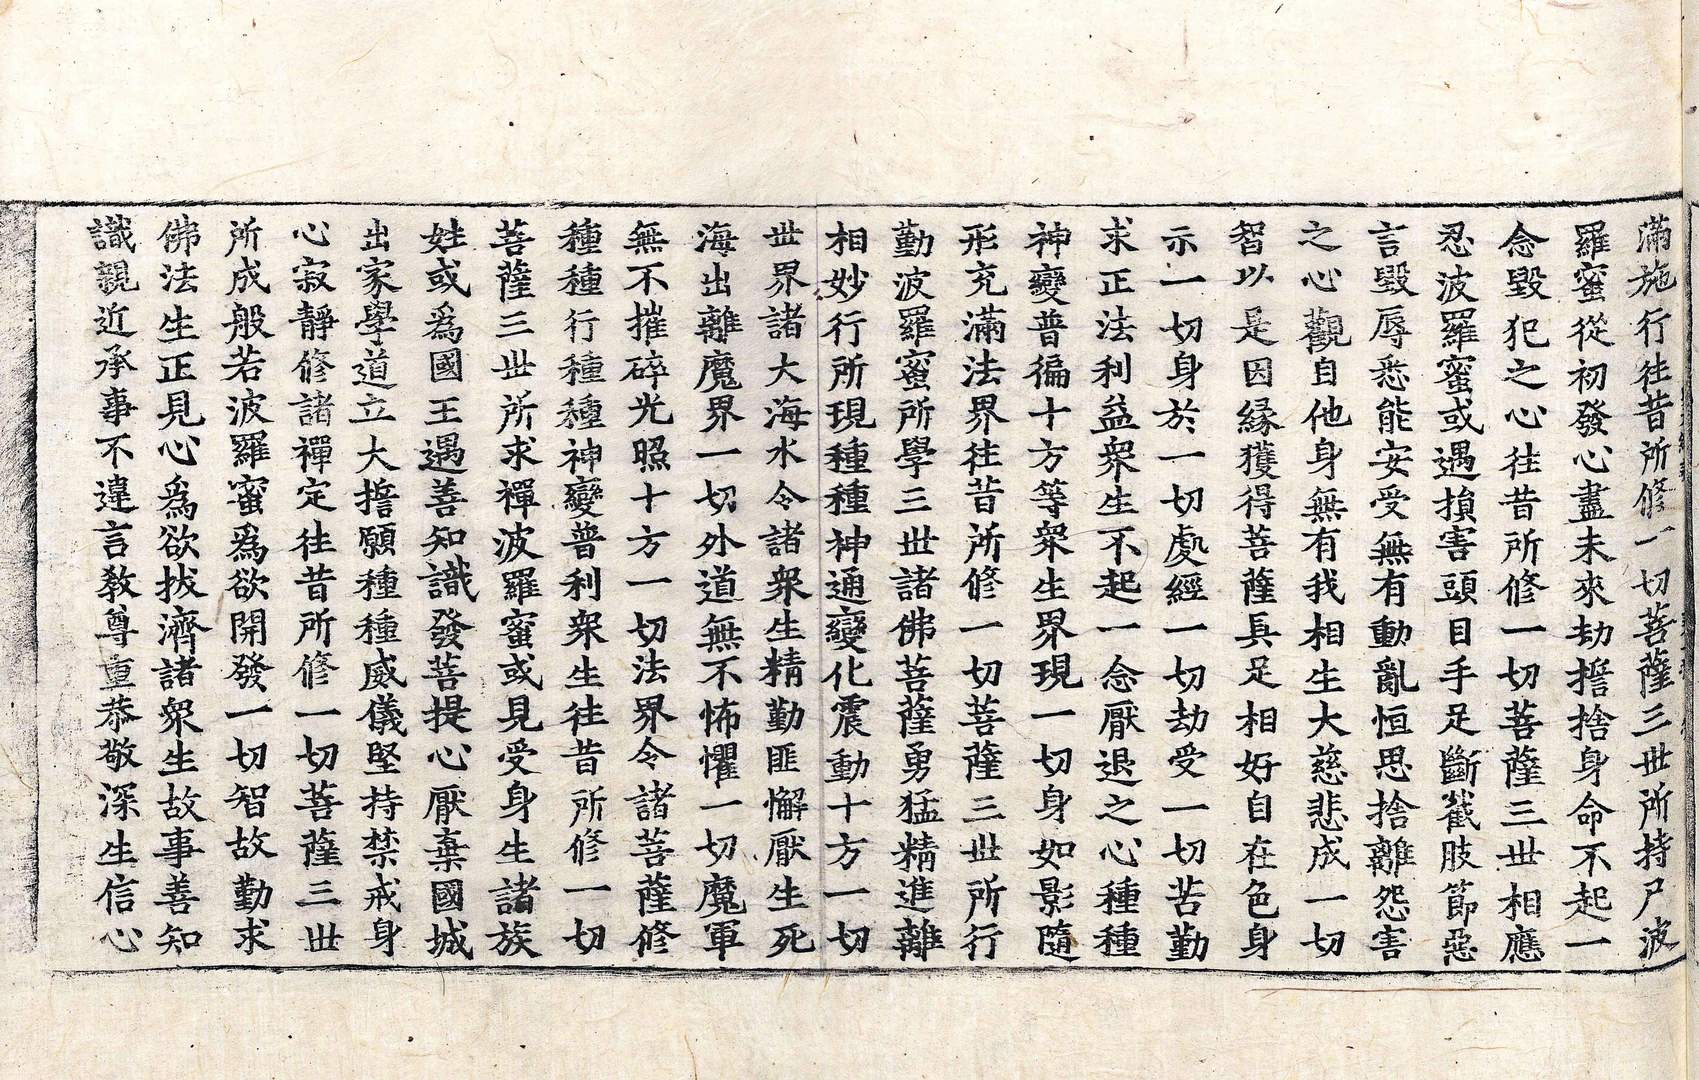 滿施行往昔所修一切菩薩三世所持尸波
羅蜜從初發心盡未來劫擔捨身命不起一
念毀犯之心往昔所修一切菩薩三世相應
忍波羅蜜或遇損害頭目手足斷截肢節惡
言毀辱悉能安受無有動亂恒思捨離怨害
之心觀自他身無有我相生大慈悲成一切
智以是因緣獲得菩薩具足相好自在色身
示一切身於一切處經一切劫受一切苦勤
求正法利益衆生不起一念厭退之心種種
神變普徧十方等衆生界現一切身如影隨
形充滿法界往昔所修一切菩薩三世所行
勤波羅蜜所學三世諸佛菩薩勇猛精進離
相妙行所現種種神通變化震動十方一切
世界諸大海水令諸衆生精勤匪懈厭生死
海出離魔界一切外道無不怖懼一切魔軍
無不摧碎光照十方一切法界令諸菩薩修
種種行種種神變普利衆生往昔所修一切
菩薩三世所求禪波羅蜜或見受身生諸族
姓或爲國王遇善知識發菩提心厭棄國城
出家學道立大擔願種種威儀堅持禁戒身
心寂靜修諸禪定往昔所修一切菩薩三世
所成般若波羅蜜爲欲開發一切智故勤求
佛法生正見心爲欲拔濟諸衆生故事善知
識親近承事不違言教尊重恭敬深生信心